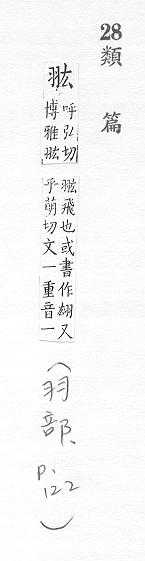 28
類篇
呼弘切
博雅
飛也或書作翃又
乎萌切文一重音一
(羽部、p.122)